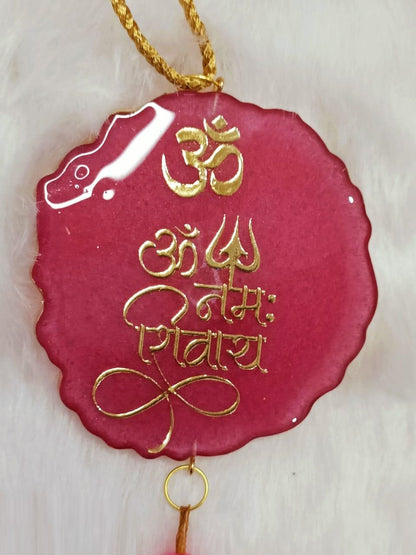 ॐ
ॐ
नमः
शिवाय